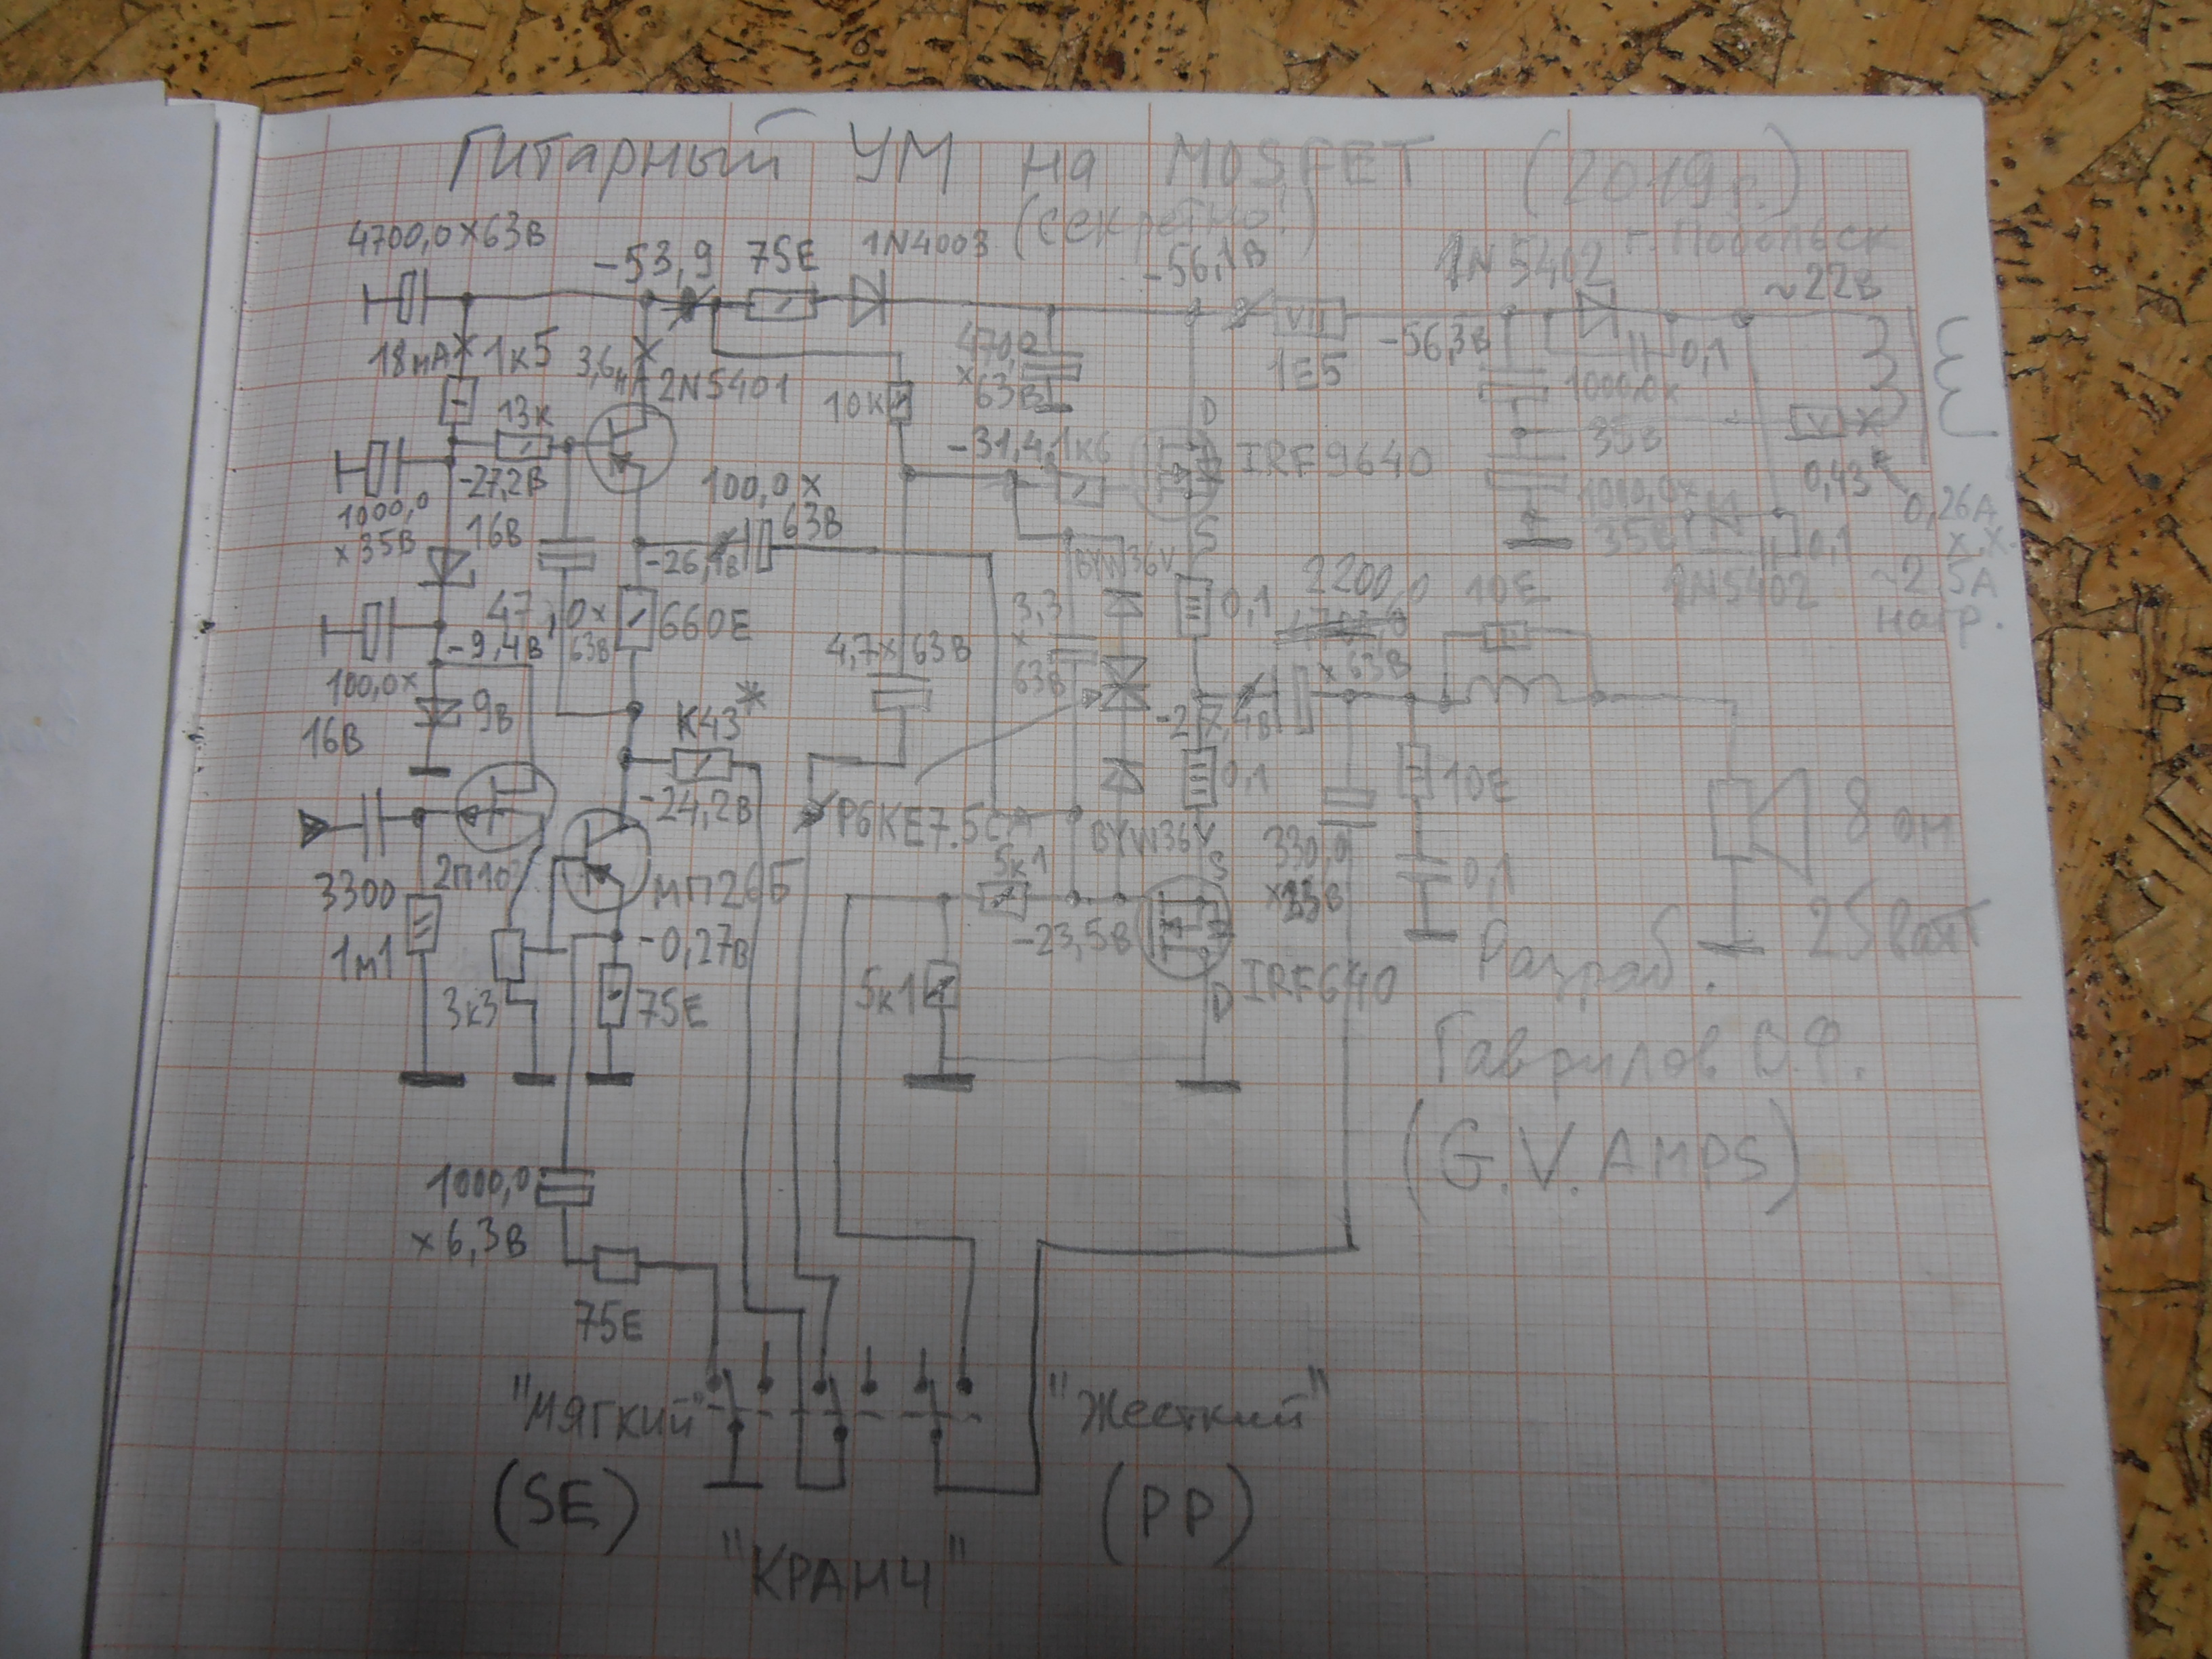 Гитарный УМ на MOSFET (2019г.)
(секретно!)
г. Подольск
4700,0x63В
-53,9
75Е
1N4003
-56,1В
1N5402
~22В
18мА
1к5
3,6м
2N5401
10к
470,0
x
63В
1Е5
-56,3В
0,1
1000,0x
35В
13к
-27,2В
-31,4
1к6
D
IRF9640
S
0,43
0,26А
х.х.
~2,5А
нагр.
1000,0
x35В
16В
100,0x
63В
-26,1В
BYW36V
1000,0x
35В
0,1
1N5402
47,0x
63В
-9,4В
660Е
4,7x63В
3,3
x
63В
0,1
2200,0
x63В
10Е
100,0x
16В
9В
К43*
-27,4В
-24,2В
P6KE7.5CA
BYW36V
0,1
10Е
8 ом
3300
2П103
МП26Б
5к1
S
330,0
0,1
25 Ватт
1м1
-0,27В
-23,5В
3к3
75Е
5к1
D
IRF640
Разраб.
Гаврилов В.Ф.
(G.V. AMPS)
1000,0
x6,3В
75Е
"Мягкий"
"Жесткий"
(SE)
(PP)
"КРАНЧ"